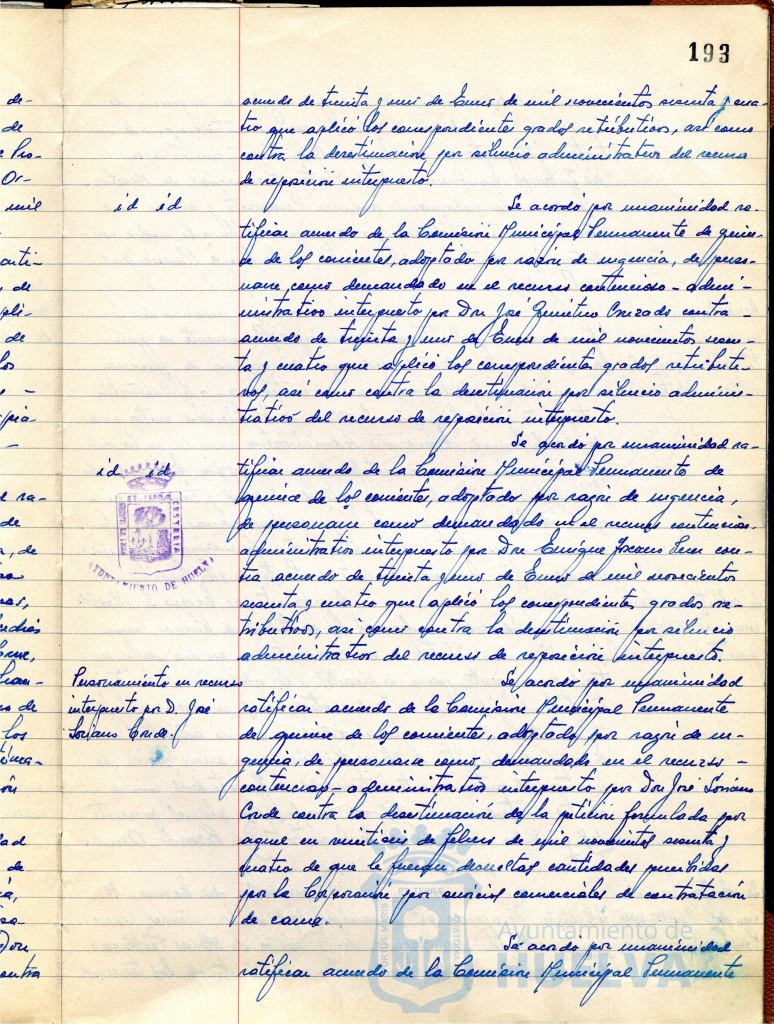 193
acuerdo de treinta y uno de Enero de mil novecientos sesenta y cua-
tro que aplicó los correspondientes grados retributivos, así como
contra la desestimación por silencio administrativo del recurso
de reposición interpuesto.
id id
Se acordó por unanimidad ra-
tificar acuerdo de la Comisión Municipal Permanente de quin-
ce de los corrientes, adoptado por razón de urgencia, de perso-
narse como demandado en el recurso contencioso-admi-
nistrativo interpuesto por Don José Quintero Cruzado contra
acuerdo de treinta y uno de Enero de mil novecientos sesen-
ta y cuatro que aplicó los correspondientes grados retributi-
vos, así como contra la desestimación por silencio adminis-
trativo del recurso de reposición interpuesto.
id id
Se acordó por unanimidad ra-
tificar acuerdo de la Comisión Municipal Permanente de
quince de los corrientes, adoptado por razón de urgencia,
de personarse como demandado en el recurso contencioso-
administrativo interpuesto por Don Enrique con-
tra acuerdo de treinta y uno de Enero de mil novecientos
sesenta y cuatro que aplicó los correspondientes grados re-
tributivos, así como contra la desestimación por silencio
administrativo del recurso de reposición interpuesto.
AYUNTAMIENTO DE HUELVA
Personamiento en recurso
interpuesto por D. José
Soriano Conde.
Se acordó por unanimidad
ratificar acuerdo de la Comisión Municipal Permanente
de quince de los corrientes, adoptado por razón de ur-
gencia, de personarse como demandado en el recurso -
contencioso-administrativo interpuesto por Don José Soriano
Conde contra la desestimación de la petición formulada por
aquel en veintiseis de febrero de mil novecientos sesenta y
cuatro de que le fueran devueltas cantidades percibidas
por la Corporación por servicios comerciales de contratación
de carne.
Se acordó por unanimidad
ratificar acuerdo de la Comisión Municipal Permanente
Ayuntamiento de
HUELVA